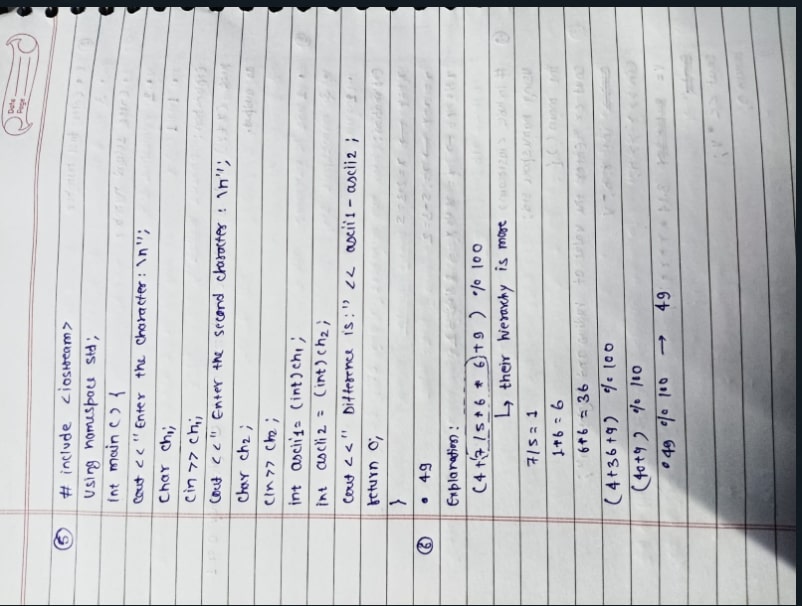 Date
Page
⑤ # include <iostream>
Using namespace std;
Int main () {
Cout << "Enter the character: \n";
Char ch1;
Cin >> ch1;
Cout << "Enter the second character: \n";
Char ch2;
Cin >> ch2;
int ascii1 = (int)ch1;
int ascii2 = (int)ch2;
Cout << "Difference is:" << ascii1 - ascii2;
return 0;
}
⑥ • 49
Explanation:
(4+(7/5*6*6)+9) % 100
↳ their hierarchy is more
7/5 = 1
1*6 = 6
6*6 = 36
(4+36+9) % 100
(40+9) % 100
• 49 % 100 → 49